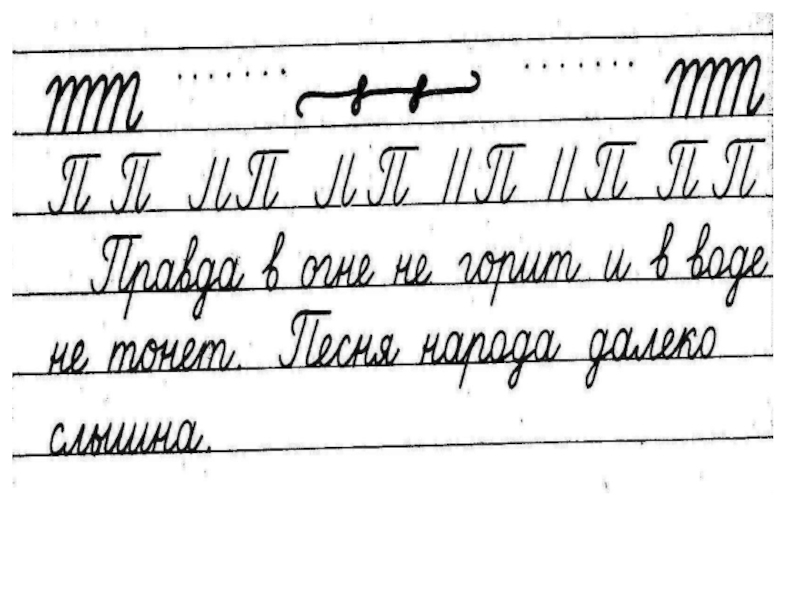 П П П П П П П П
Правда в огне не горит и в воде
не тонет. Песня народа далеко
слышна.